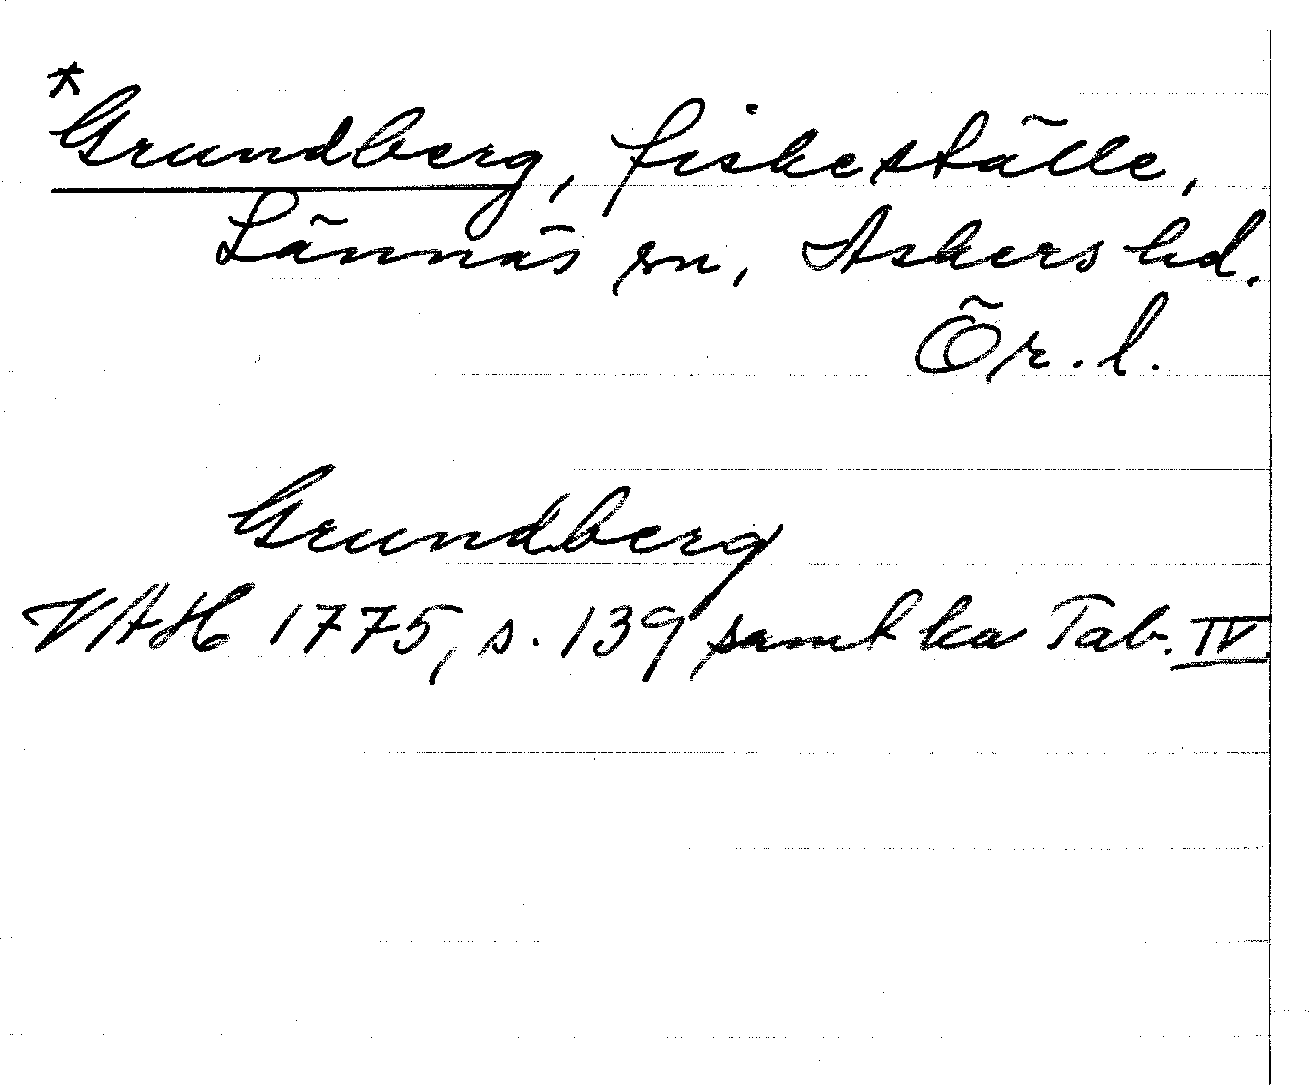 *Grundberg, fiskeställe,
Lännäs sn, Askers hd.
Ör. l.
Grundberg
VAH 1775, s. 139 samt ka Tab. IV.